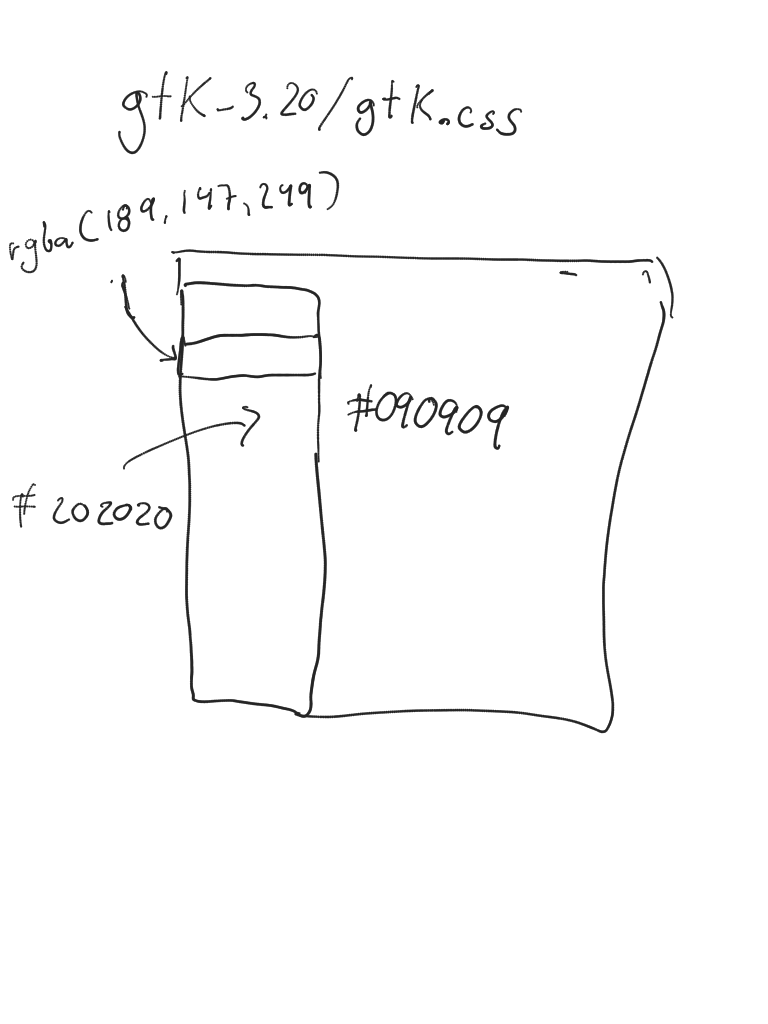 gtk-3.20/gtk.css
rgba(189, 147, 249)
#090909
#202020